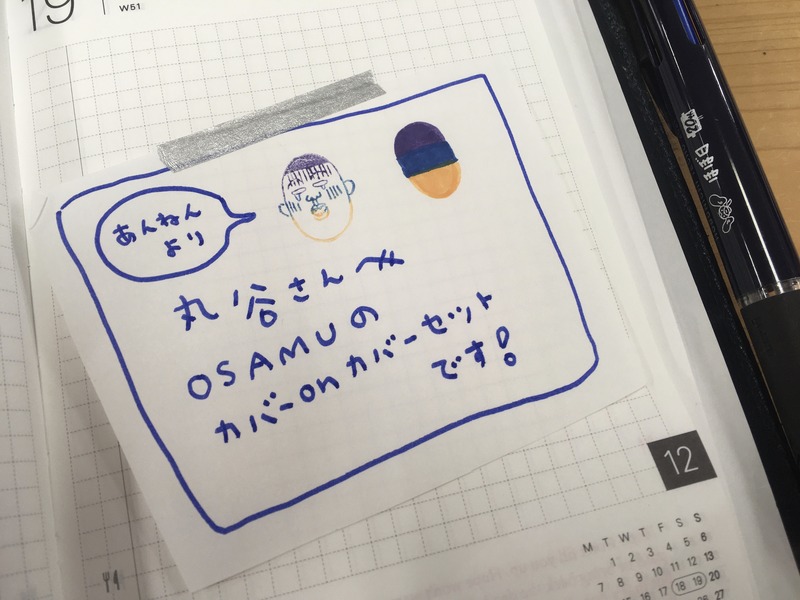 19
W51
あんねん
より
丸谷さんへ
OSAMUの
カバーonカバーセット
です!
12
M T W T F S S
1 2 3 4 5 6
7 8 9 10 11 12 13
15 16 17 18 19 20
26 27